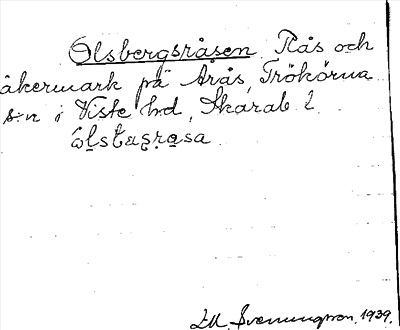 Olsbergsråsen. Ås och
åkermark på Arås, Trökörna
s:n i Viste hd, Skarab. l.
EM. Svenungsson. 1939.